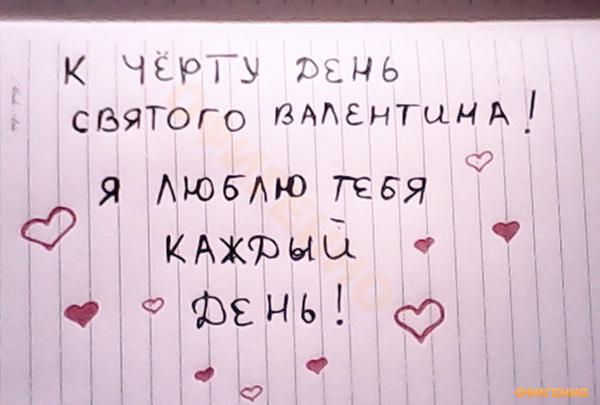 К ЧЁРТУ ДЕНЬ
СВЯТОГО ВАЛЕНТИНА!
Я ЛЮБЛЮ ТЕБЯ
КАЖДЫЙ
ДЕНЬ!
ОФИГЕННО
ОФИГЕННО